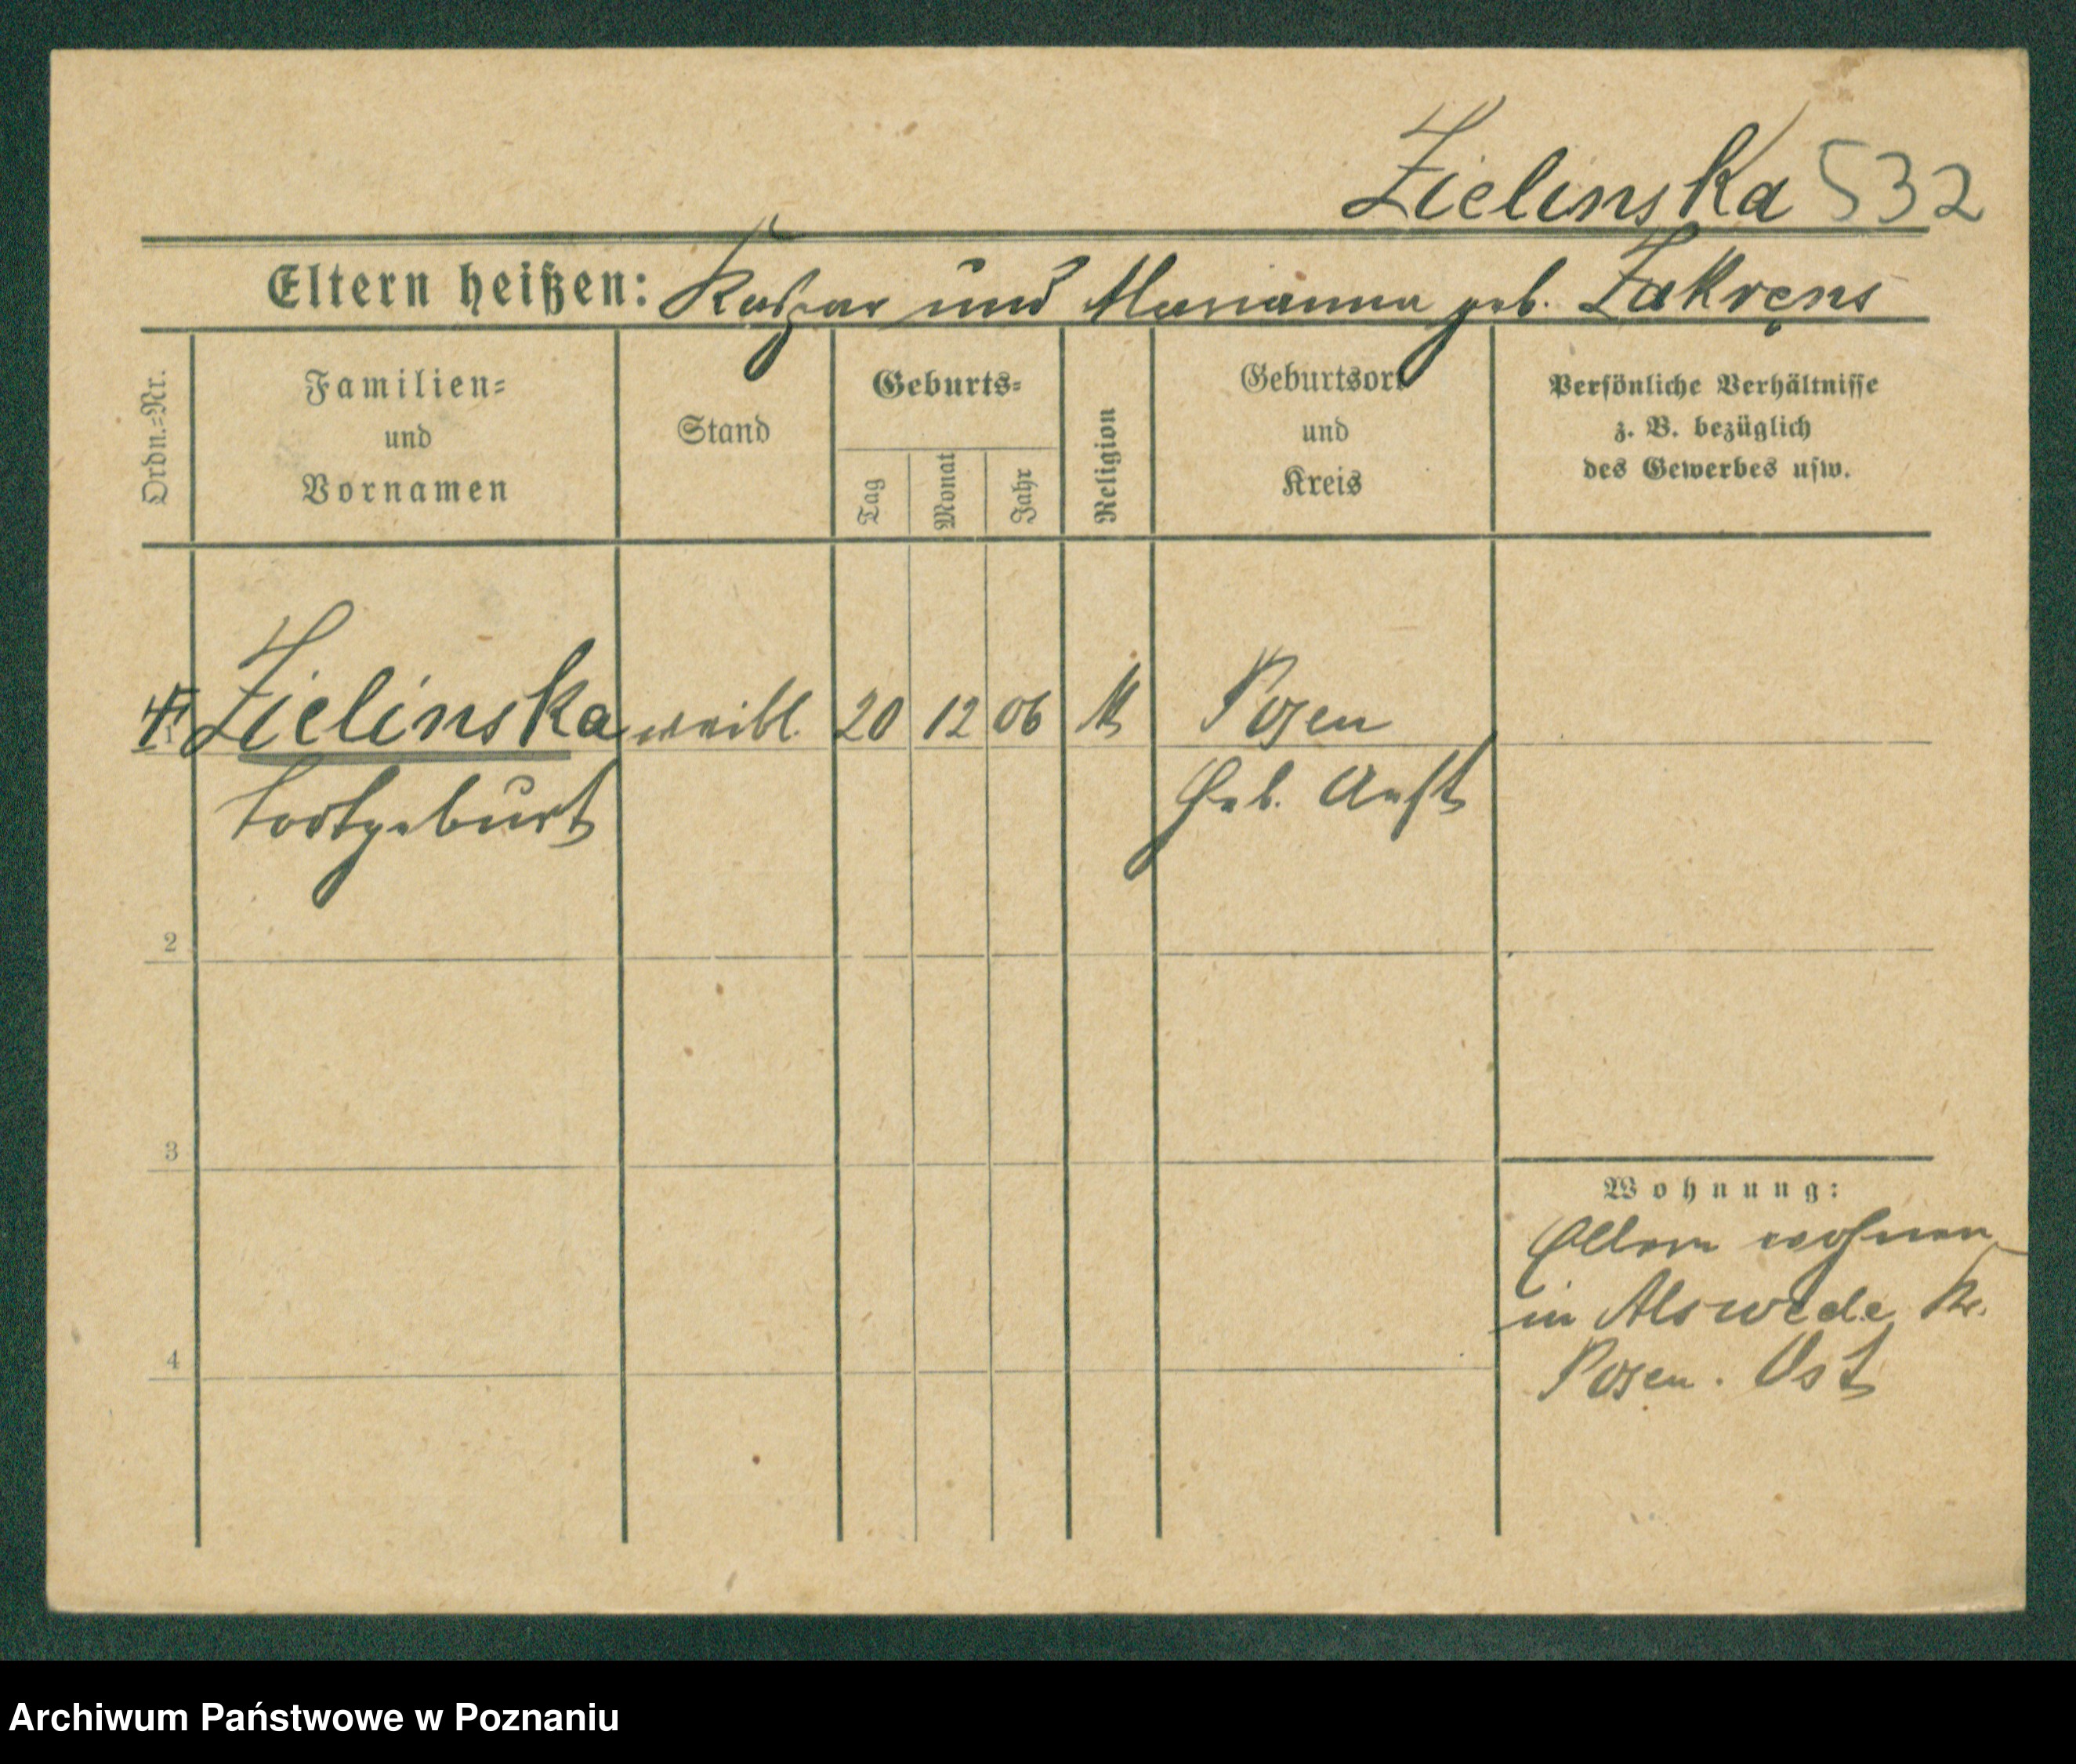 Zielinska 532
Eltern heißen: Kaspar und Marianna geb. Zakręns
Ordn.-Nr.
Familien-
und
Vornamen
Stand
Geburts-
Tag
Monat
Jahr
Religion
Geburtsort
und
Kreis
Persönliche Verhältnisse
z. B. bezüglich
des Gewerbes usw.
Zielinska weibl. 20 12 06 Posen
Todtgeburt Geb. Anst
2
3
Wohnung:
Eltern wohnen
in Alswede Kr.
4
Posen. Ost
Archiwum Państwowe w Poznaniu